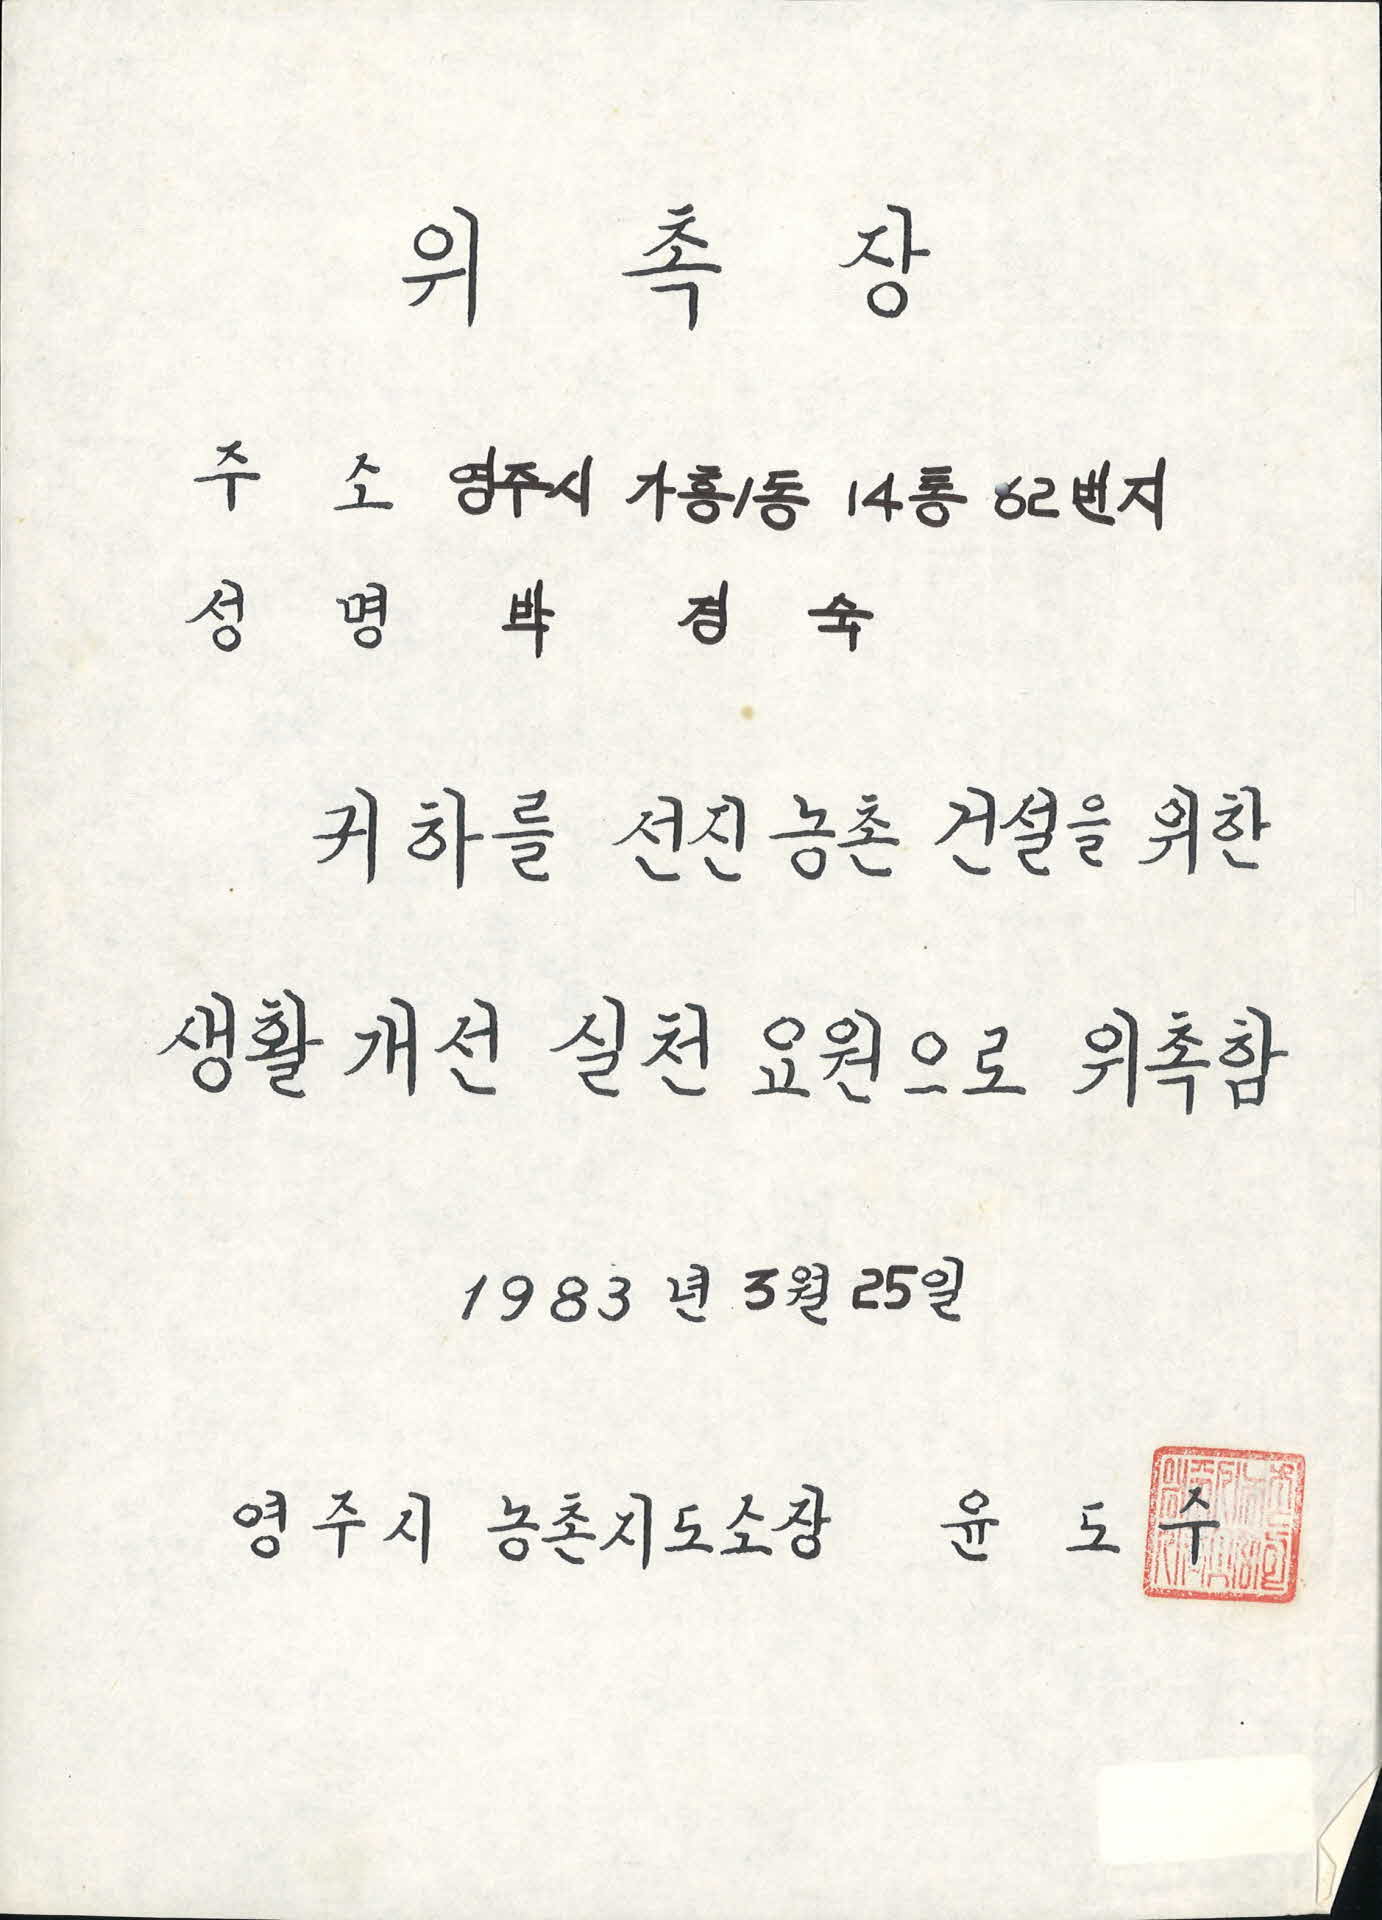 위 촉 장
주 소 영주시 가흥1동 14통 62번지
성 명 박 경 숙
귀하를 선진 농촌 건설을 위한
생활 개선 실천 요원으로 위촉함
1983년 3월 25일
영주시 농촌지도소장 윤 도 수